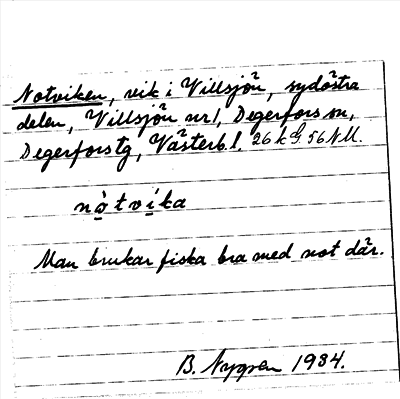 Notviken, vik i Villsjön, sydöstra
delen, Villsjön nr 1, Degerfors sn,
Degerforstg, Västerb. l. 26 k G. 56 N.M.
nòtvíka
Man brukar fiska bra med not där.
B. Nygren 1934.